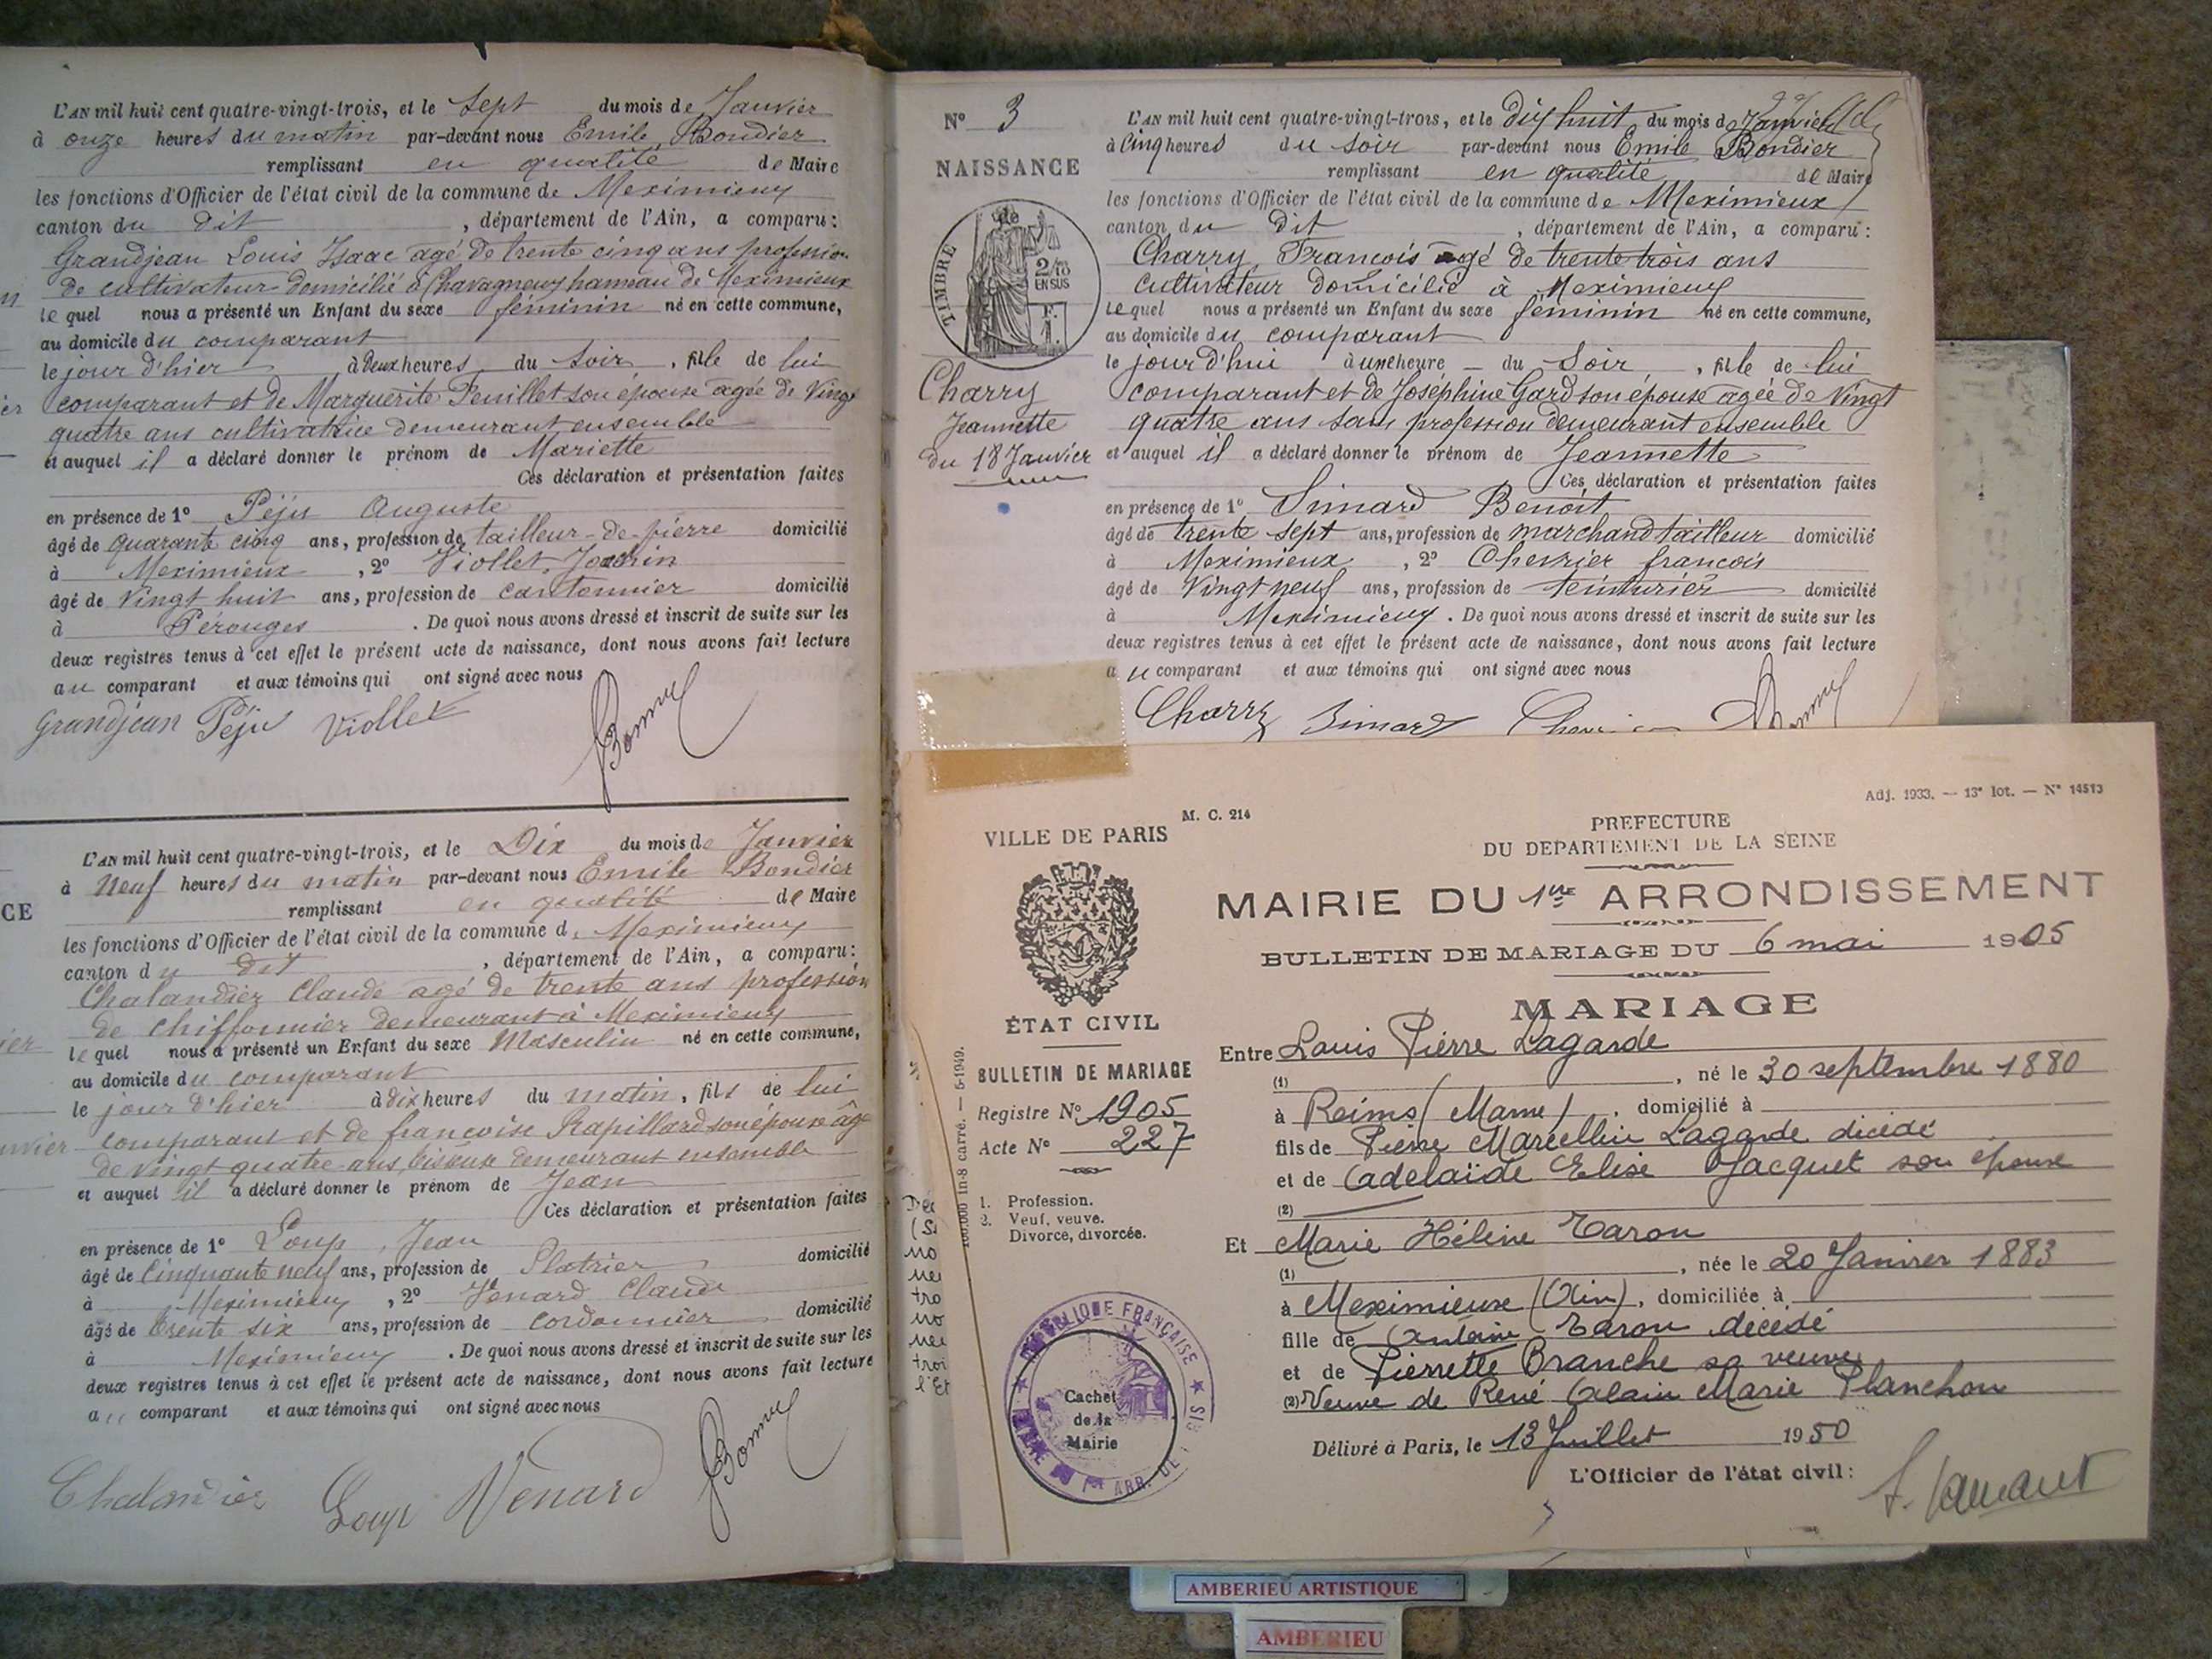 L'AN mil huit cent quatre-vingt-trois, et le Sept du mois de Janvier
à onze heures du matin par-devant nous Emile Bondier
remplissant en qualité de Maire
les fonctions d'Officier de l'état civil de la commune de Meximieux
canton du dit , département de l'Ain, a comparu:
Grandjean Louis Isaac agé de trente cinq ans profession
de cultivateur domicilié à Chavagneux hameau de Meximieux
le quel nous a présenté un Enfant du sexe féminin né en cette commune,
au domicile du comparant
le jour d'hier à deux heures du soir , fille de lui
comparant et de Marguerite Feuillet son épouse agée de Vingt
quatre ans cultivatrice demeurant ensemble
et auquel il a déclaré donner le prénom de Mariette
Ces déclaration et présentation faites
en présence de 1° Péju Auguste
âgé de quarante cinq ans, profession de tailleur-de-pierre domicilié
à Meximieux , 2° Viollet
âgé de Vingt huit ans, profession de cantonnier domicilié
à Pérouges . De quoi nous avons dressé et inscrit de suite sur les
deux registres tenus à cet effet le présent acte de naissance, dont nous avons fait lecture
au comparant et aux témoins qui ont signé avec nous
Grandjean Péju Viollet
CE
L'AN mil huit cent quatre-vingt-trois, et le Dix du mois de Janvier
à Neuf heures du matin par-devant nous Emile Bondier
remplissant en qualité de Maire
les fonctions d'Officier de l'état civil de la commune d. Meximieux
canton du dit , département de l'Ain, a comparu:
Chalandier Claude agé de trente ans profession
de chiffonnier demeurant à Meximieux
le quel nous a présenté un Enfant du sexe Masculin né en cette commune,
au domicile du comparant
le jour d'hier à dix heures du matin, fils de lui
comparant et de françoise Rapillard son épouse âgé
de Vingt quatre ans, demeurant ensemble
et auquel il a déclaré donner le prénom de Jean
Ces déclaration et présentation faites
en présence de 1° Loup, Jean
âgé de Cinquante neuf ans, profession de Platrier domicilié
à Meximieux , 2° Venard Claude
âgé de trente six ans, profession de cordonnier domicilié
à Meximieux . De quoi nous avons dressé et inscrit de suite sur les
deux registres tenus à cet effet le présent acte de naissance, dont nous avons fait lecture
au comparant et aux témoins qui ont signé avec nous
Chalandier Loup Venard
N° 3
NAISSANCE
TIMBRE
2/10
EN SUS
F.
1.
Charry
Jeannette
du 18 Janvier
L'AN mil huit cent quatre-vingt-trois, et le dix huit du mois de Janvier
à Cinq heures du soir par-devant nous Emile Bondier
remplissant en qualité de Maire
les fonctions d'Officier de l'état civil de la commune de Meximieux
canton du dit , département de l'Ain, a comparu:
Charry François agé de trente trois ans
Cultivateur domicilié à Meximieux
le quel nous a présenté un Enfant du sexe féminin né en cette commune,
au domicile du comparant
le jour d'hui à une heure du Soir , fille de lui
comparant et de Joséphine Gard son épouse agée de Vingt
quatre ans sans profession demeurant ensemble
et auquel il a déclaré donner le prénom de Jeannette
Ces déclaration et présentation faites
en présence de 1° Simard Benoit
âgé de trente sept ans, profession de marchand tailleur domicilié
à Meximieux , 2° Chevrier françois
âgé de Vingt neuf ans, profession de teinturier domicilié
à Meximieux . De quoi nous avons dressé et inscrit de suite sur les
deux registres tenus à cet effet le présent acte de naissance, dont nous avons fait lecture
au comparant et aux témoins qui ont signé avec nous
Charry Simard
M. C. 214
Adj. 1933. — 13e lot. — N° 14513
VILLE DE PARIS
ÉTAT CIVIL
BULLETIN DE MARIAGE
Registre N° 1905
Acte N° 227
1. Profession.
2. Veuf, veuve.
Divorce, divorcée.
100.000 in-8 carré. — 5-1949.
RÉPUBLIQUE FRANÇAISE
Cachet
de la
Mairie
PREFECTURE
DU DEPARTEMENT DE LA SEINE
MAIRIE DU 1er ARRONDISSEMENT
BULLETIN DE MARIAGE DU 6 mai 1905
MARIAGE
Entre Louis Pierre Lagarde
(1) , né le 30 septembre 1880
à Reims (Marne) , domicilié à
fils de Pierre Marcellin Lagarde décédé
et de Adelaïde Elise Jacquet son épouse
(2)
Et Marie Hélène Taron
(1) , née le 20 Janvier 1883
à Meximieux (Ain), domiciliée à
fille de Antoine Taron décédé
et de Pierrette Branche sa veuve
(2) Veuve de René Alain Marie Planchon
Délivré à Paris, le 13 Juillet 1950
L'Officier de l'état civil:
AMBERIEU ARTISTIQUE
AMBERIEU